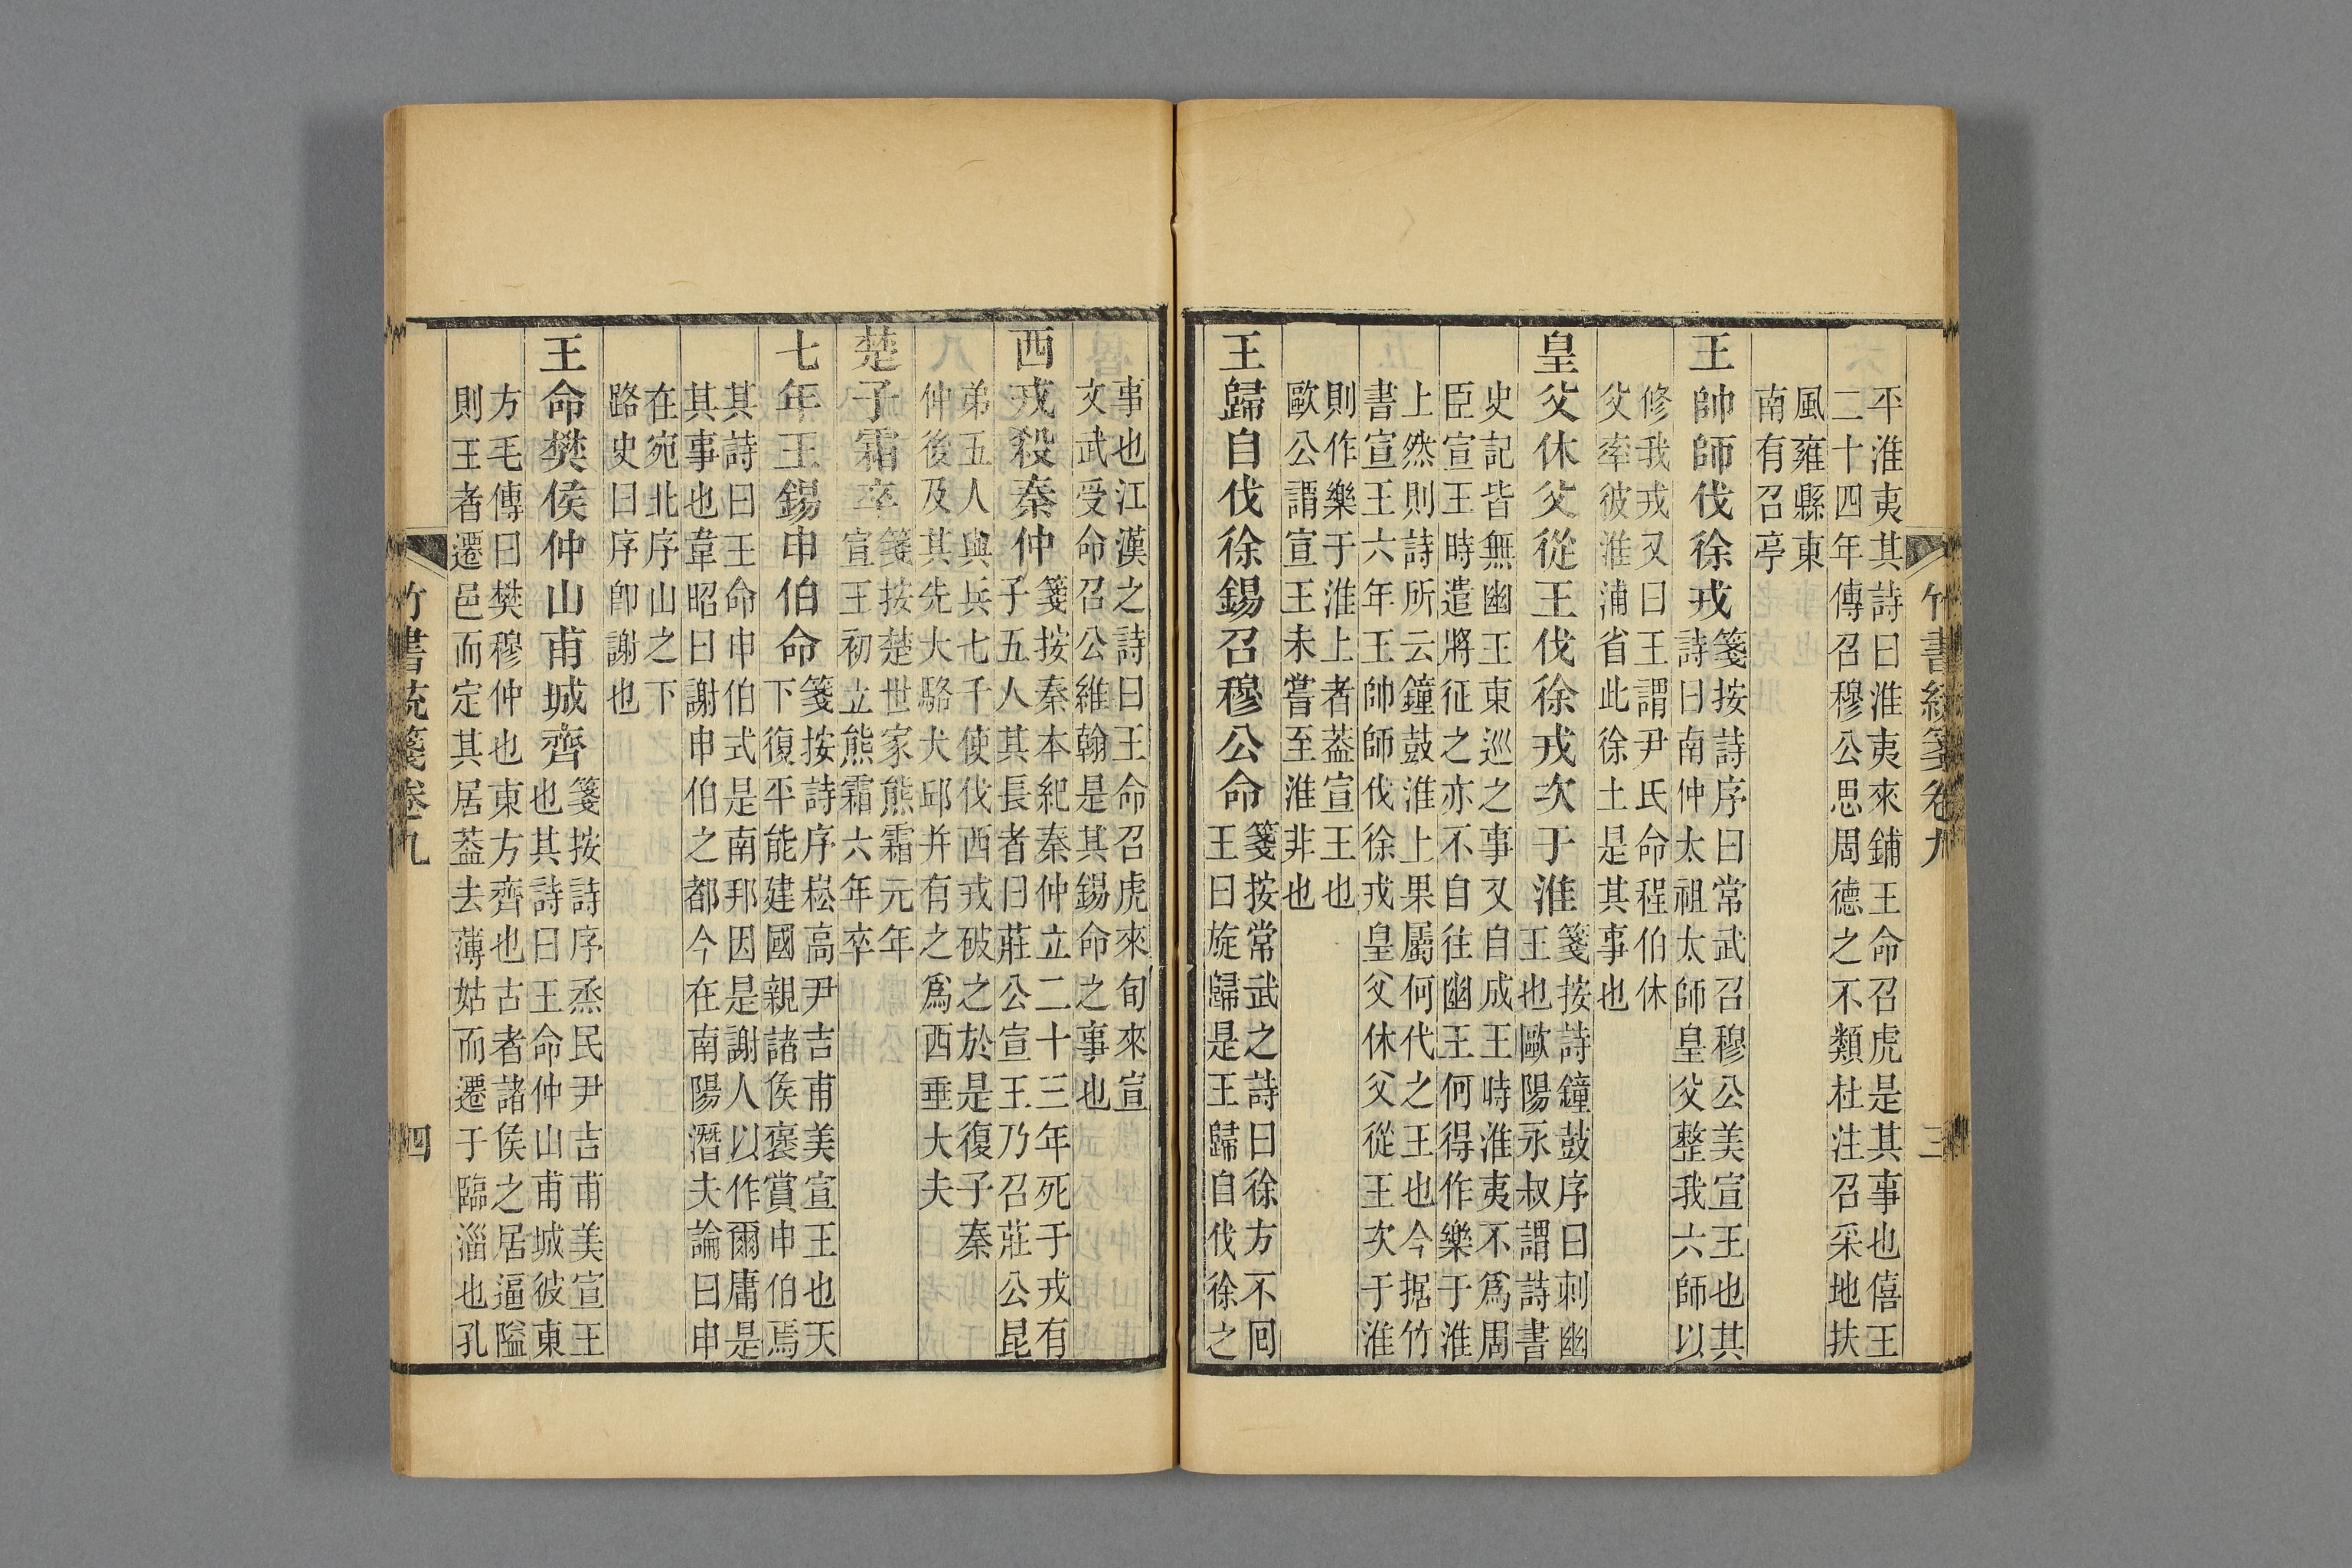 竹書統箋卷九 三
平淮夷其詩曰淮夷來鋪王命召虎是其事也僖王
二十四年傳召穆公思周德之不類杜注召采地扶
風雍縣東
南有召亭
王帥師伐徐戎
箋按詩序曰常武召穆公美宣王也其
詩曰南仲太祖太師皇父整我六師以
修我戎又曰王謂尹氏命程伯休
父率彼淮浦省此徐土是其事也
皇父休父從王伐徐戎次于淮
箋按詩鐘鼓序曰刺幽
王也歐陽永叔謂詩書
史記皆無幽王東巡之事又自成王時淮夷不爲周
臣宣王時遣將征之亦不自往幽王何得作樂于淮
上然則詩所云鐘鼓淮上果屬何代之王也今据竹
書宣王六年王帥師伐徐戎皇父休父從王次于淮
則作樂于淮上者葢宣王也
歐公謂宣王未嘗至淮非也
王歸自伐徐錫召穆公命
箋按常武之詩曰徐方不回
王曰旋歸是王歸自伐徐之
事也江漢之詩曰王命召虎來旬來宣
文武受命召公維翰是其錫命之事也
西戎殺秦仲
箋按秦本紀秦仲立二十三年死于戎有
子五人其長者曰莊公宣王乃召莊公昆
弟五人與兵七千使伐西戎破之於是復子秦
仲後及其先大駱犬邱并有之爲西垂大夫
楚子霜卒
箋按楚世家熊霜元年
宣王初立熊霜六年卒
七年王錫申伯命
箋按詩序崧高尹吉甫美宣王也天
下復平能建國親諸侯褒賞申伯焉
其詩曰王命申伯式是南邦因是謝人以作爾庸是
其事也韋昭曰謝申伯之都今在南陽潛夫論曰申
在宛北序山之下
路史曰序卽謝也
王命樊侯仲山甫城齊
箋按詩序烝民尹吉甫美宣王
也其詩曰王命仲山甫城彼東
方毛傳曰樊穆仲也東方齊也古者諸侯之居逼隘
則王者遷邑而定其居葢去薄姑而遷于臨淄也孔
竹書統箋卷九 四